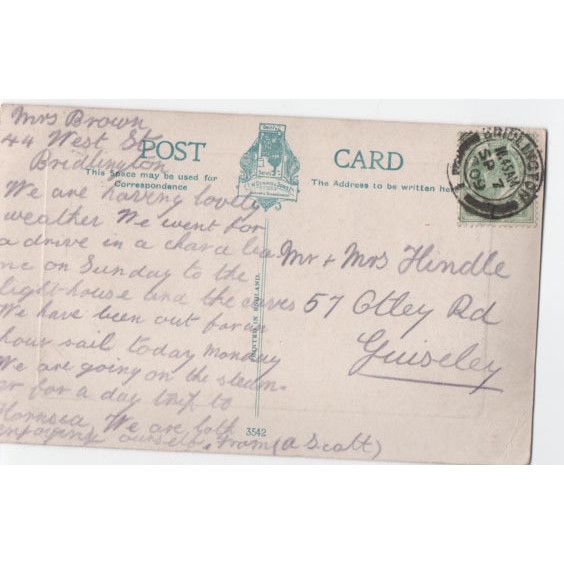 Mrs Brown
44 West St
Bridlington
POST CARD
This Space may be used for
Correspondence
The Address to be written here
We are having lovely
weather We went for
a drive in a chara
on Sunday to the
light-house and the caves
We have been out for an
hour sail today Monday
We are going on the steam
er for a day trip to
Hornsea We are both
enjoying ourselv from (A Scott)
Mr + Mrs Hindle
57 Otley Rd
Guiseley
PRINTED IN ENGLAND.
3542
BRIDLINGTON